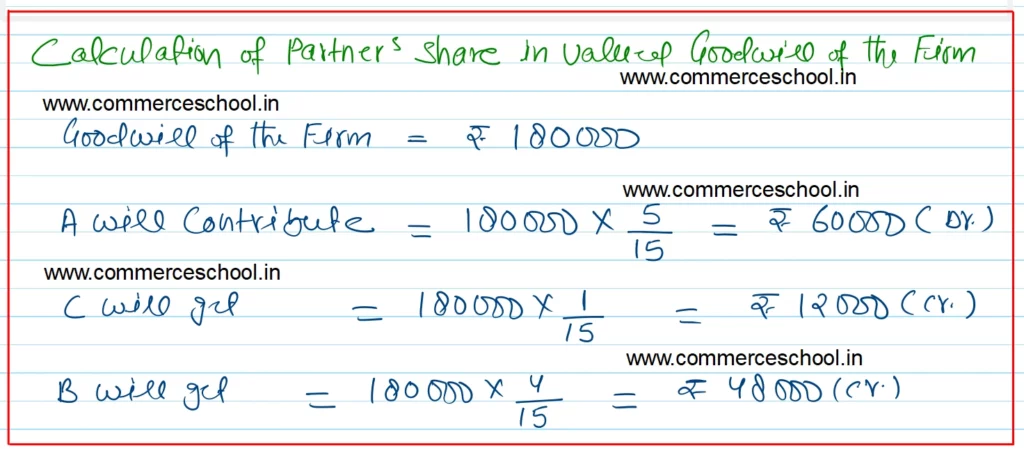 Calculation of Partner's share in value of Goodwill of the Firm
www.commerceschool.in
www.commerceschool.in
Goodwill of the Firm = ₹ 180000
www.commerceschool.in
A will Contribute = 180000 × 5/15 = ₹ 60000 (Dr.)
www.commerceschool.in
C will get = 180000 × 1/15 = ₹ 12000 (Cr.)
www.commerceschool.in
B will get = 180000 × 4/15 = ₹ 48000 (Cr.)